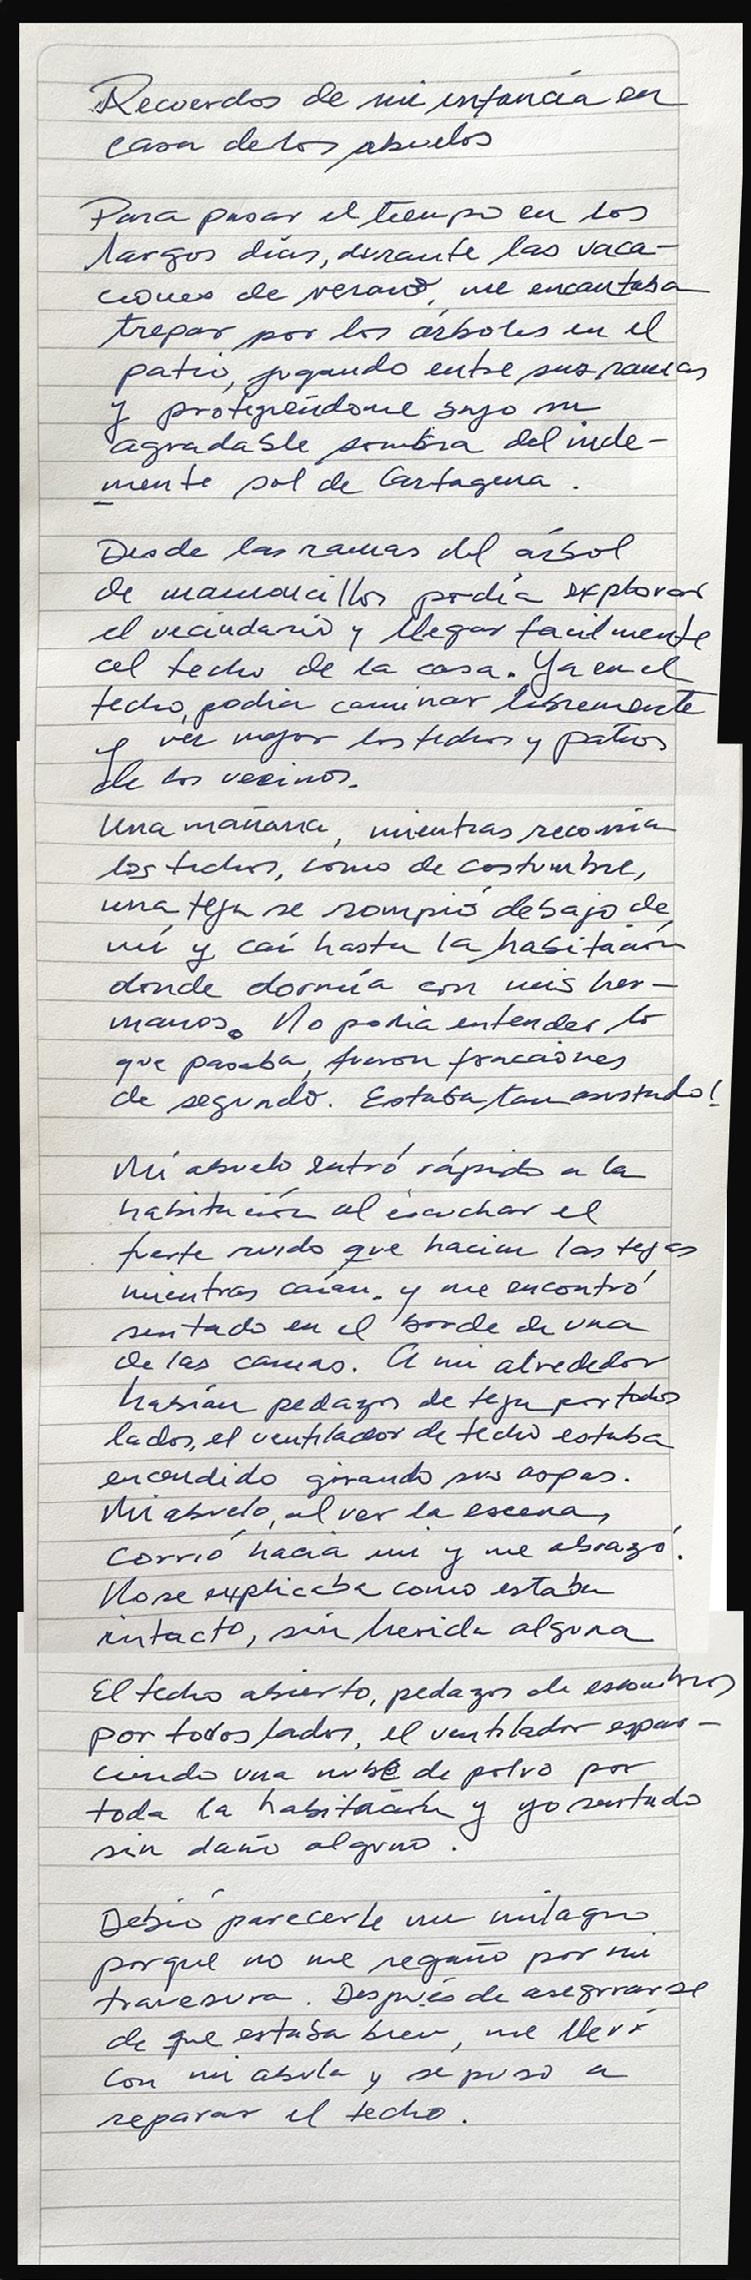 Recuerdos de mi infancia en
casa de los abuelos
Para pasar el tiempo en los
largos días, durante las vaca-
ciones de verano, me encantaba
trepar por los árboles en el
patio, jugando entre sus ramas
y protegiéndome bajo su
agradable sombra del incle-
mente sol de Cartagena.
Desde las ramas del árbol
de mamoncillos podía explorar
el vecindario y llegar facilmente
al techo de la casa. Ya en el
techo, podia caminar libremente
y ver mejor los techos y patios
de los vecinos.
Una mañana, mientras recorria
los techos, como de costumbre,
una teja se rompió debajo de
mí y caí hasta la habitación
donde dormía con mis her-
manos. No podia entender lo
que pasaba, fueron fracciones
de segundo. Estaba tan asustado!
Mi abuelo entró rápido a la
habitación al escuchar el
fuerte ruido que hacian las tejas
mientras caían. y me encontró
sentado en el borde de una
de las camas. A mi alrededor
habían pedazos de teja por todos
lados, el ventilador de techo estaba
encendido girando sus aspas.
Mi abuelo, al ver la escena,
corrió hacia mi y me abrazó.
No se explicaba como estaba
intacto, sin herida alguna
El techo abierto, pedazos de escombros
por todos lados, el ventilador espar-
ciendo una nube de polvo por
toda la habitación y yo sentado
sin daño alguno.
Debió parecerle un milagro
porque no me regaño por mi
travesura. Después de asegurarse
de que estaba bien, me llevó
con mi abula y se puso a
reparar el techo.